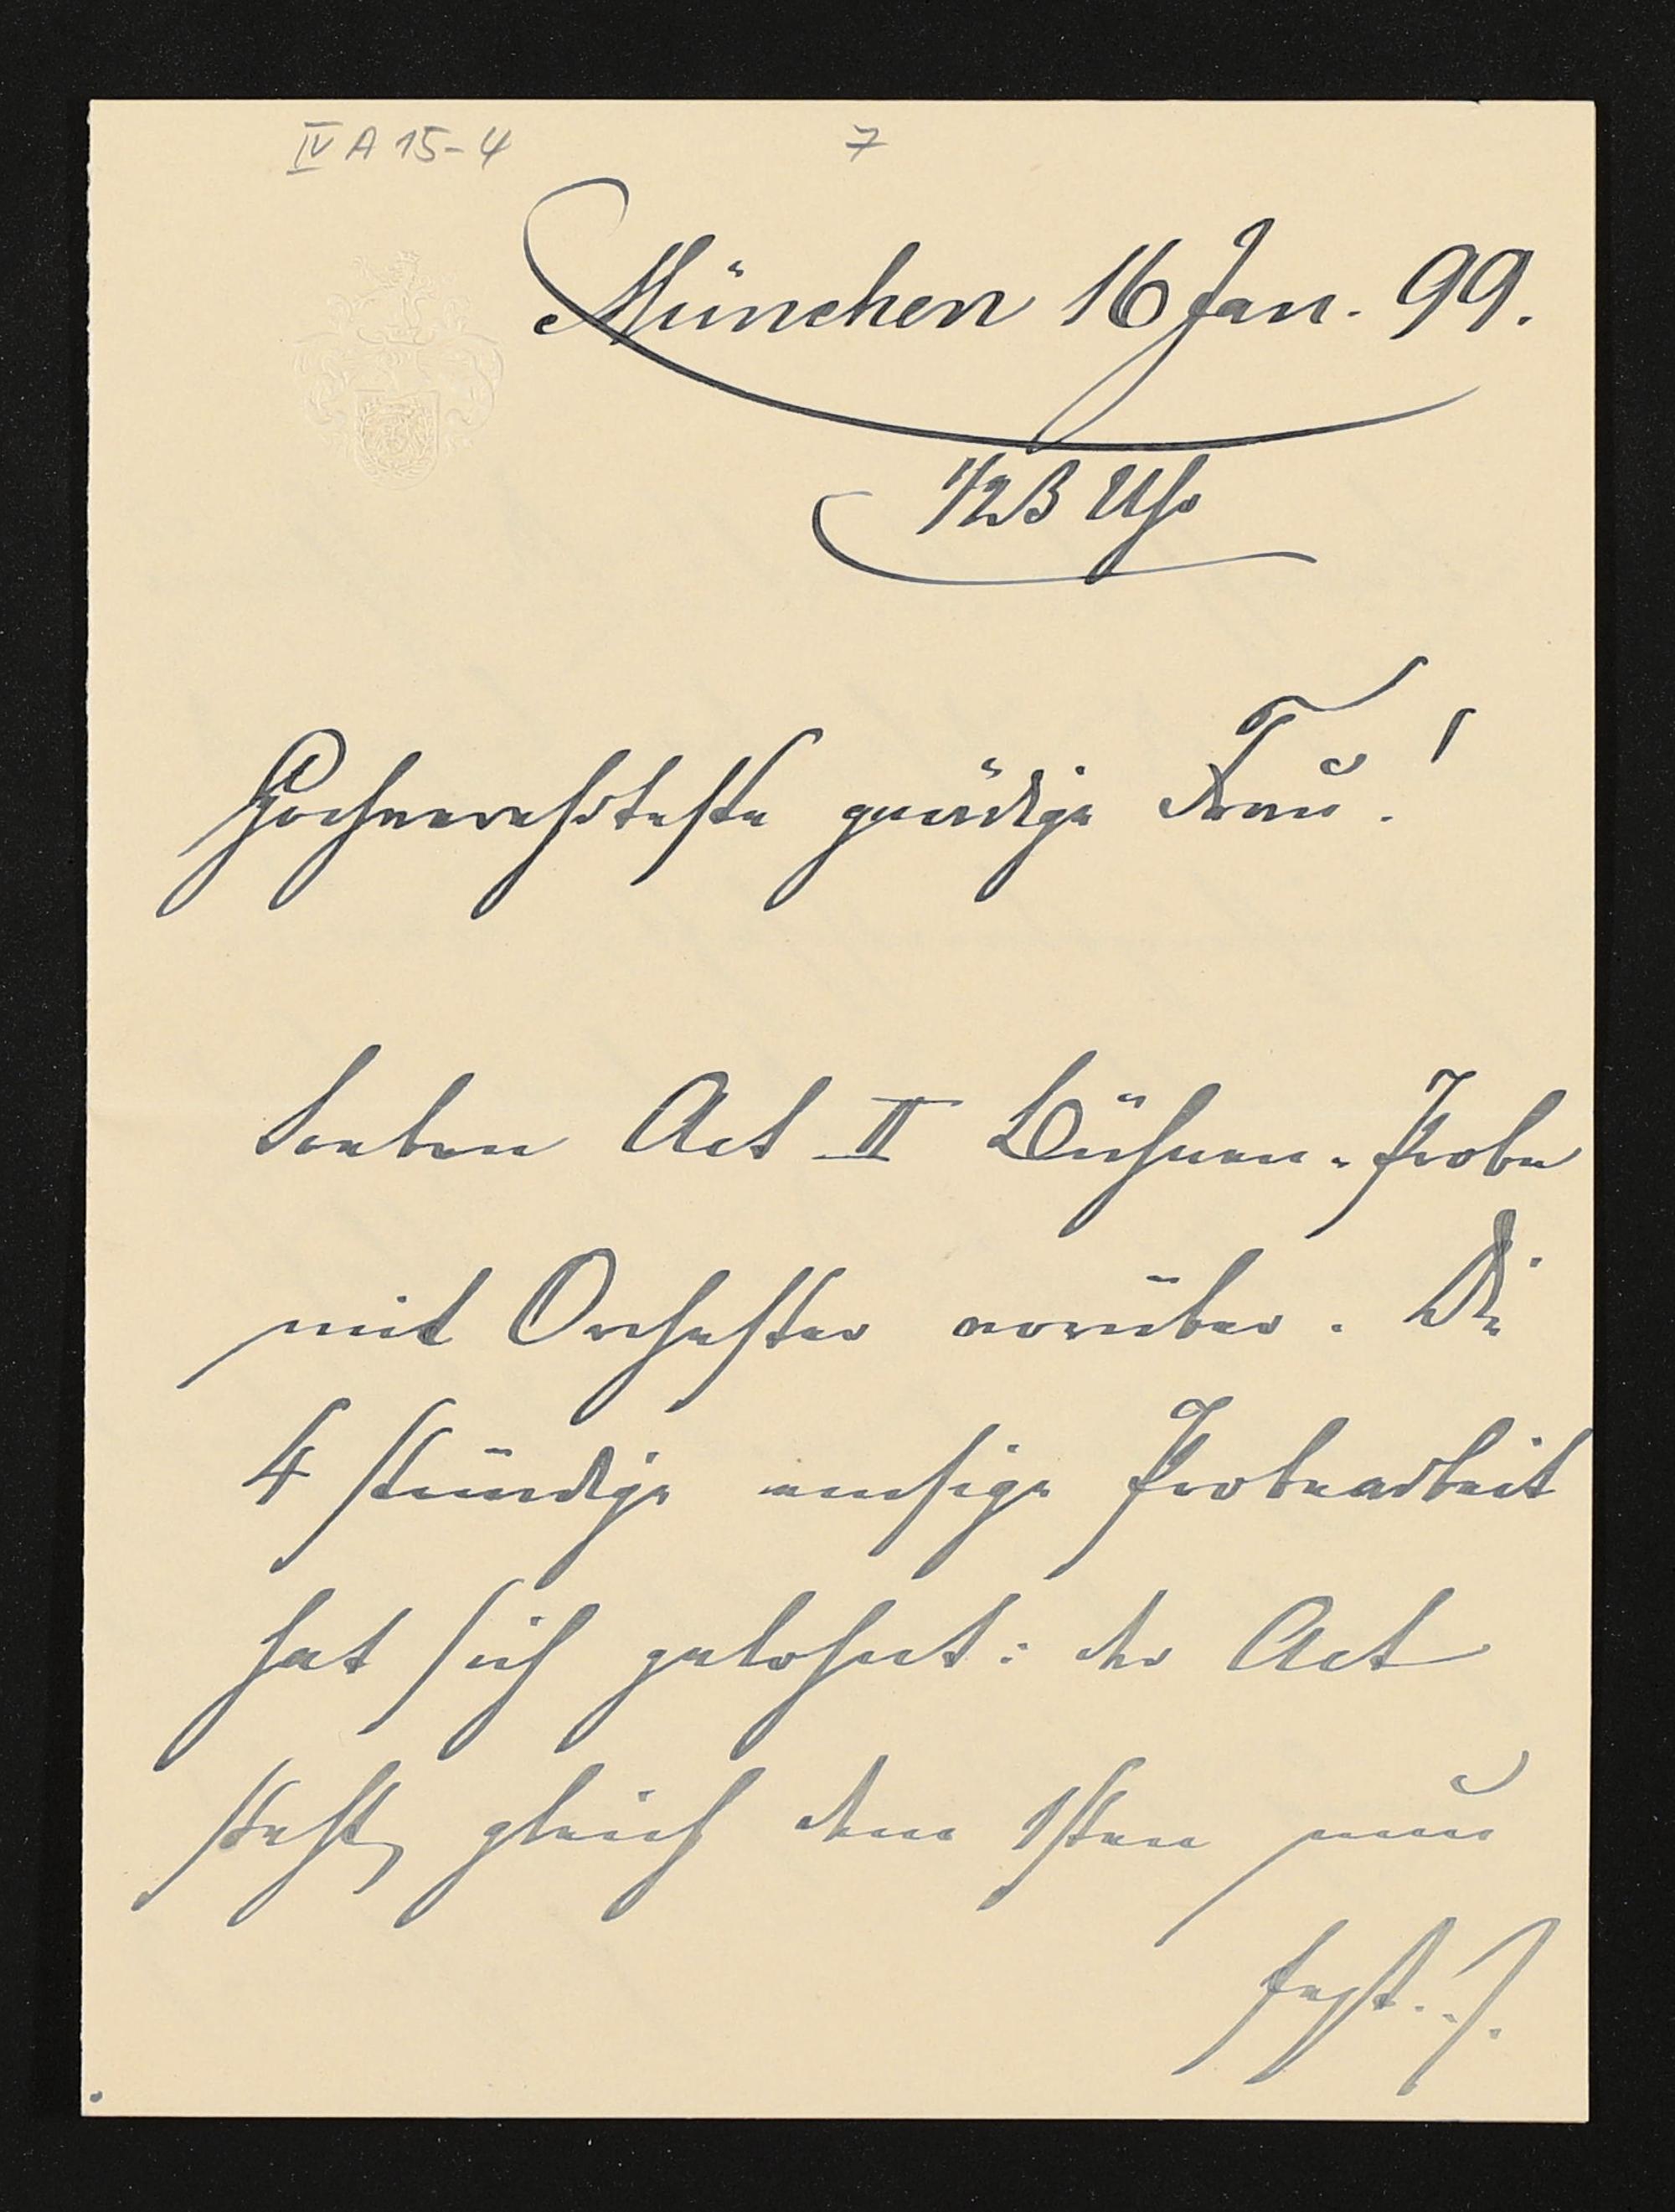 IV A 15-4 7
München 16 Jan. 99.
1/23 Uhr
Hochverehrteste gnädige Frau!
Soeben Act II Bühnen-Probe
mit Orchester vorüber. Die
4 stündige emsige Probearbeit
hat sich gelohnt: der Act
steht, gleich dem 1sten nun
fest..!